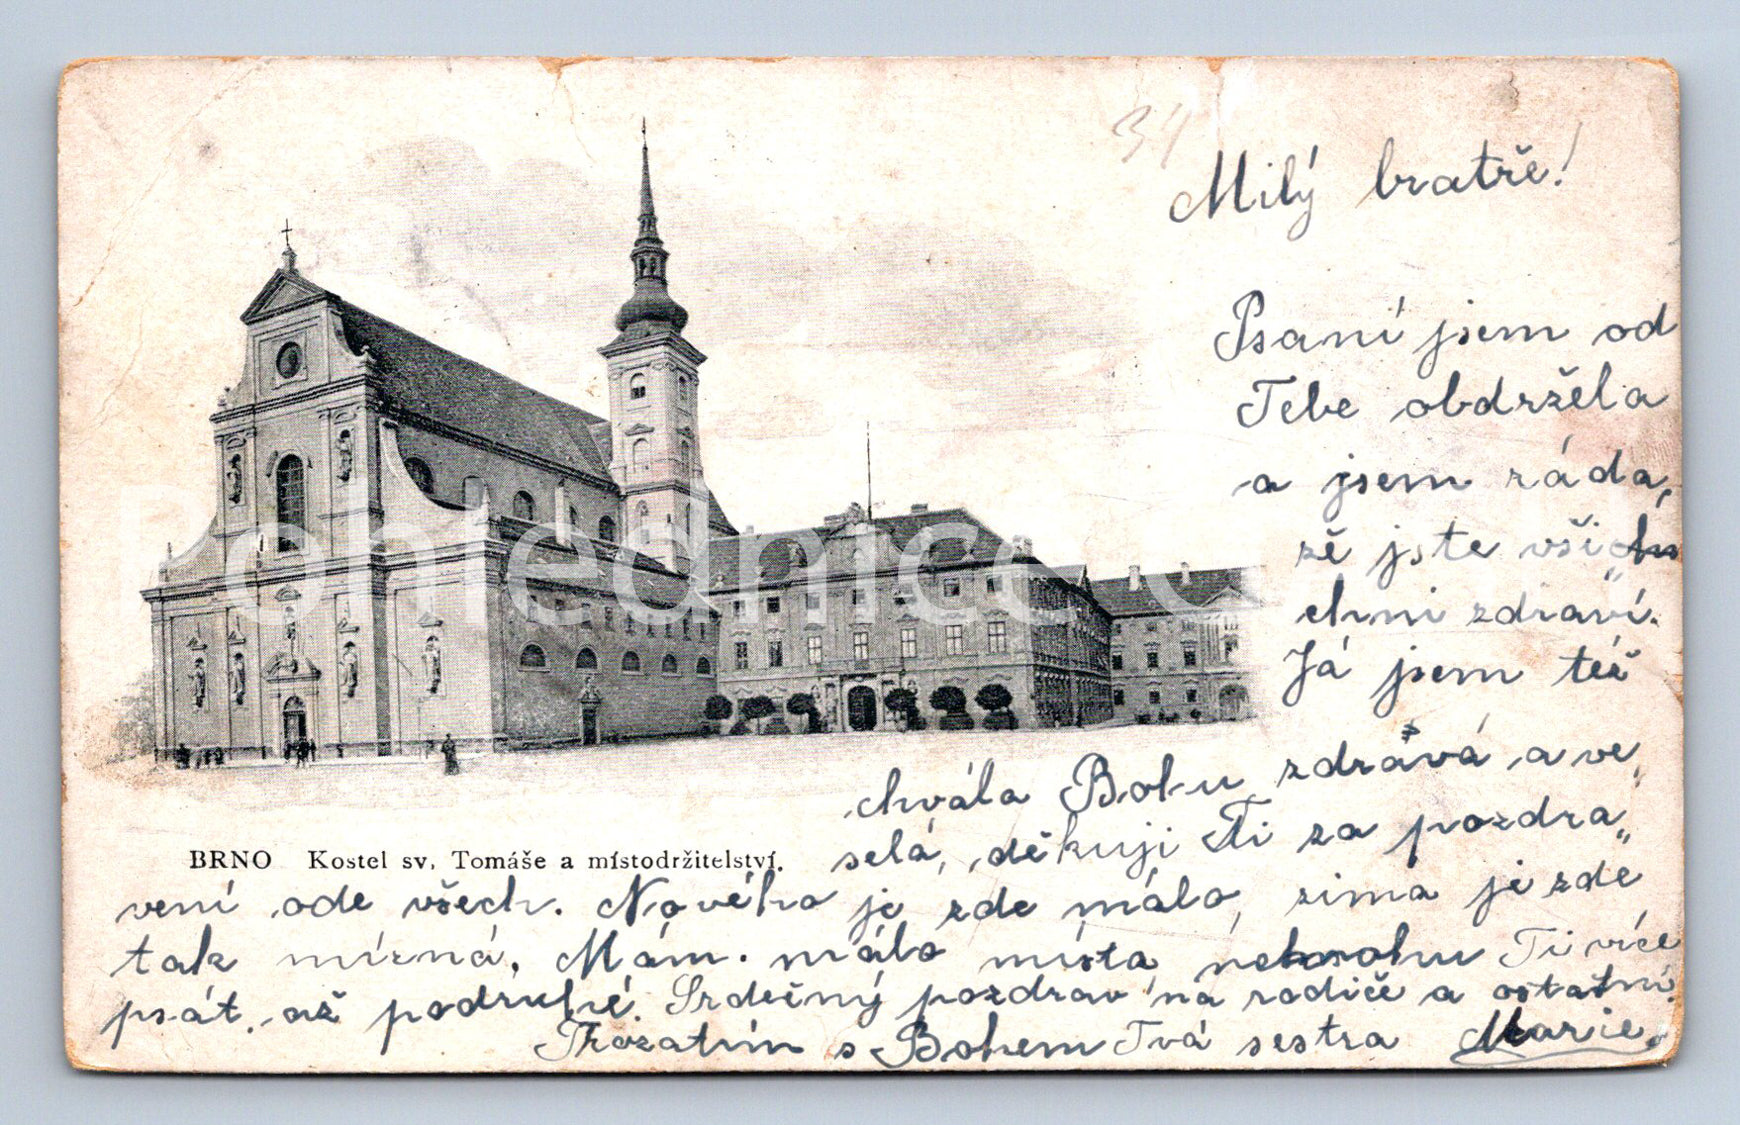 34
Milý bratře!
Psaní jsem od
Tebe obdržela
a jsem ráda,
žě jste všich„
chni zdraví.
Já jsem též
chvála Bohu zdrává a ve„
selá, děkuji Ti za pozdra„
BRNO Kostel sv. Tomáše a místodržitelství.
vení ode všech. Nového je zde málo, zima je zde
tak mírná, Mám málo místa nebmohu Ti více
psát, až podruhé. Srdečný pozdrav na rodiče a ostatní.
Prozatím s Bohem Tvá sestra Marie.
Pohlednice